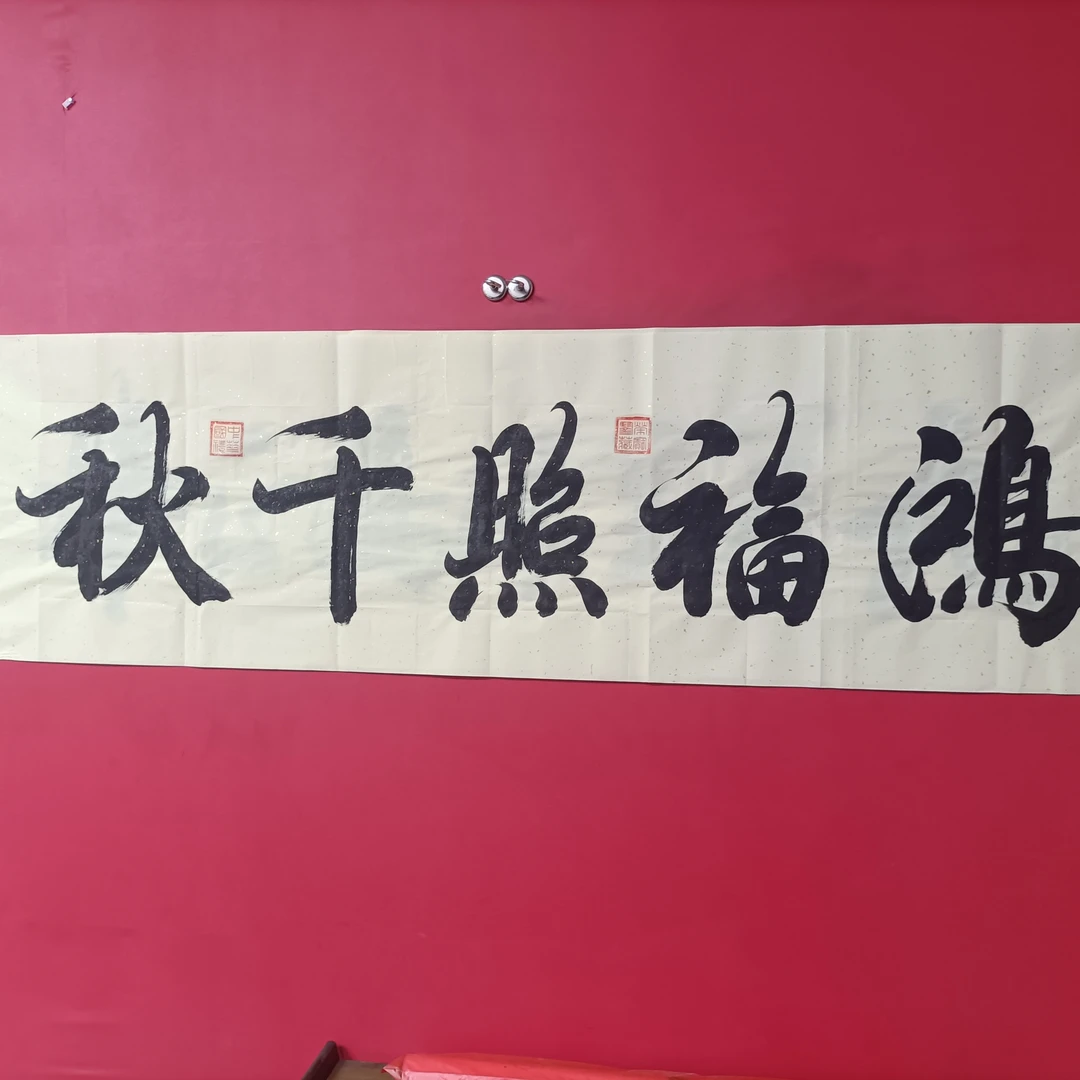 鴻福照千秋